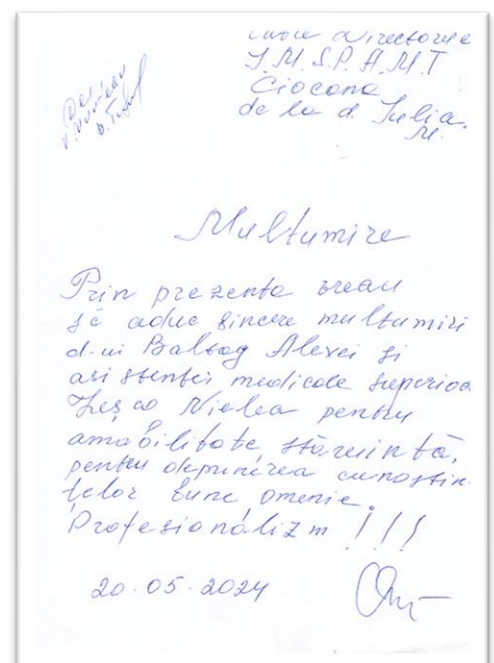 directorele
I.M.S.P. A.M.T
Ciocana
de la d. Iulia.
M.
Multumire
Prin prezenta vreau
să aduc sincere multumiri
d-ui Baltag Alexei și
asistentei medicale superioa
pentru
amabilitate, stăruință,
pentru depunerea cunoștin
țelor bune, omenie.
Profesionalizm !!!
20.05.2024